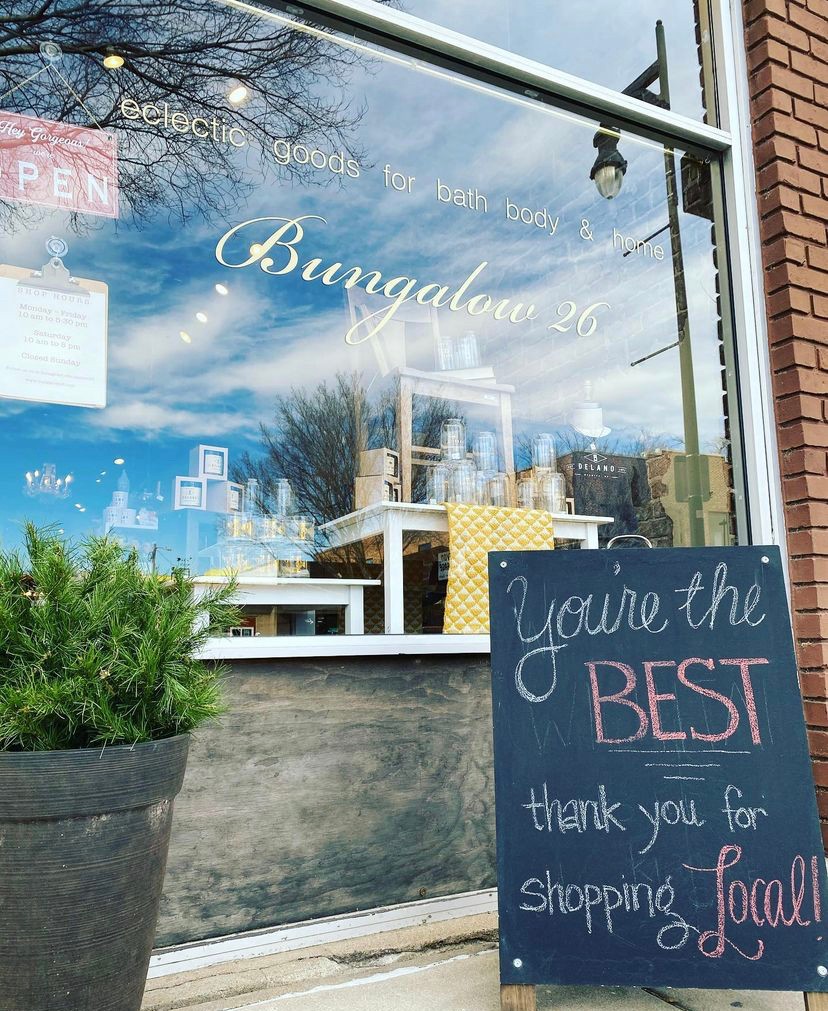 Hey Gorgeous!
we're
OPEN
eclectic goods for bath body & home
Bungalow 26
SHOP HOURS
Monday - Friday
10 am to 5:30 pm
Saturday
10 am to 5 pm
Closed Sunday
DELANO
You're the
BEST
thank you for
shopping Local!